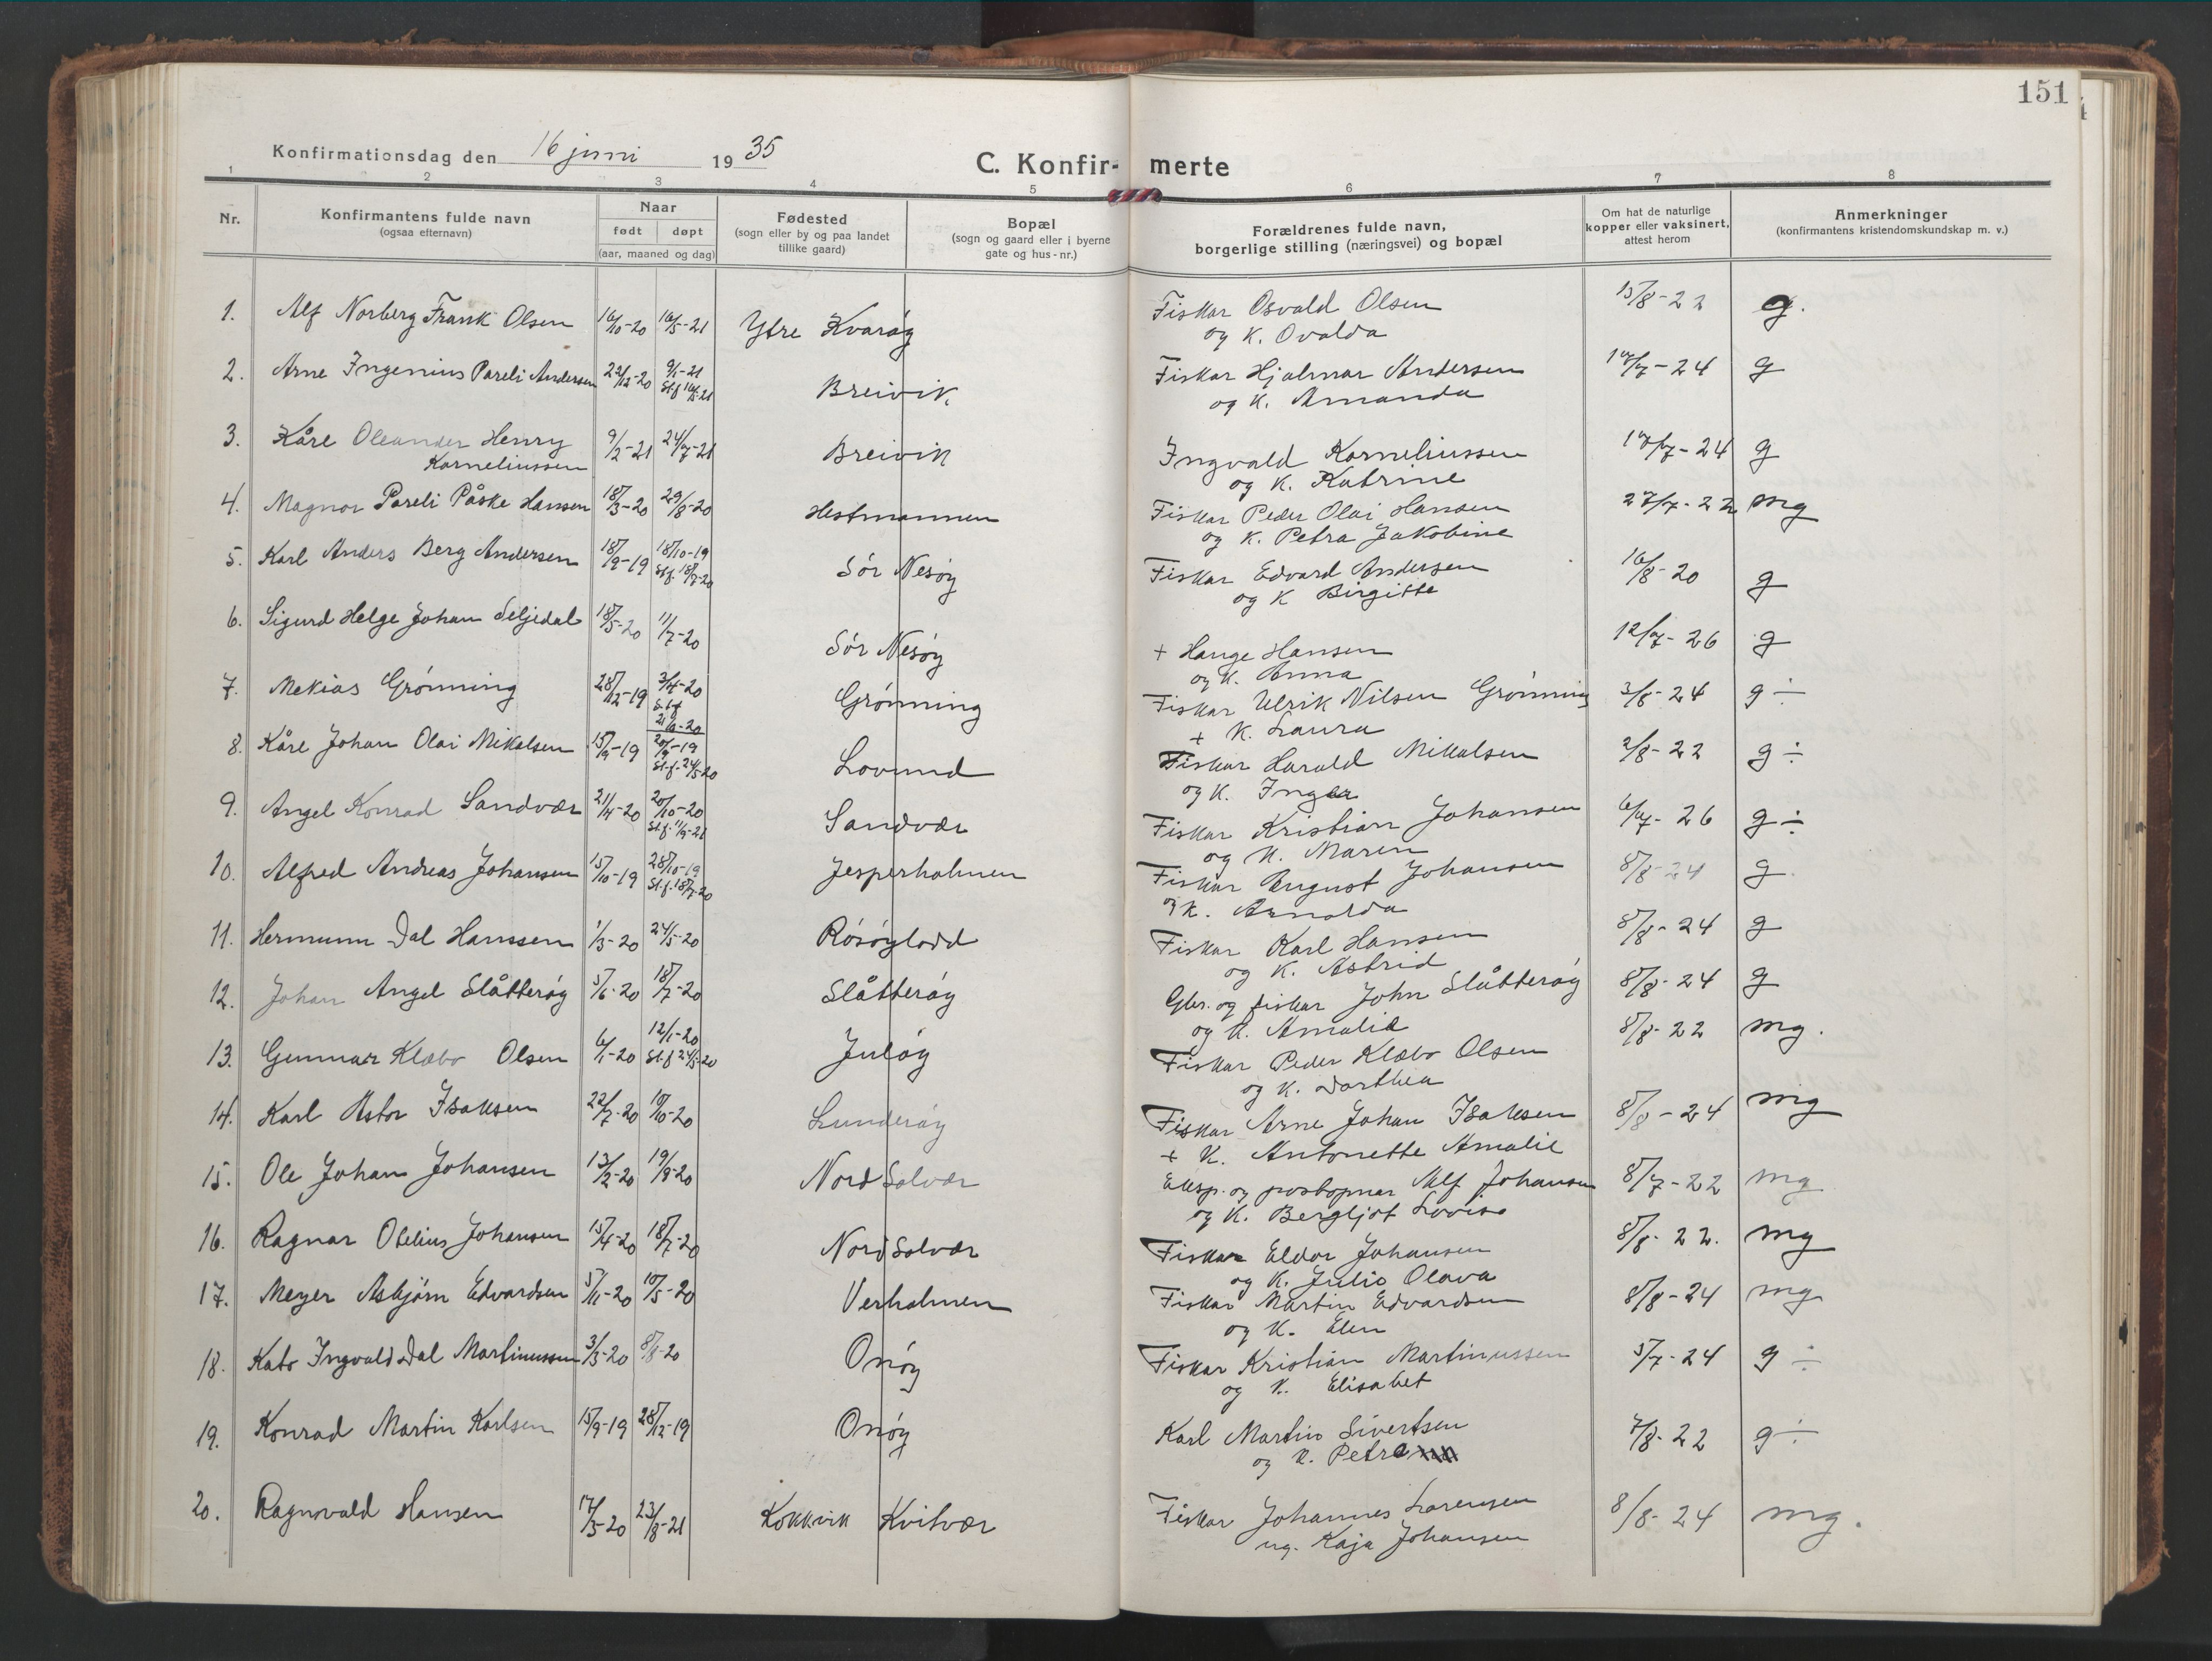 151
Konfirmationsdag den 16 juni 1935
C. Konfir- merte
1 2 3 4 5 6 7 8
Nr.
Konfirmantens fulde navn
(ogsaa efternavn)
Naar
født døpt
(aar, maaned og dag)
Fødested
(sogn eller by og paa landet
tillike gaard)
Bopæl
(sogn og gaard eller i byerne
gate og hus-nr.)
Forældrenes fulde navn,
borgerlige stilling (næringsvei) og bopæl
Om hat de naturlige
kopper eller vaksinert,
attest herom
Anmerkninger
(konfirmantens kristendomskundskap m. v.)
1. Alf Norberg Frank Olsen 16/10-20 16/5-21 Ytre Kvarøy Fiskar Osvald Olsen 15/8-22 g.
og K. Ovalda
2. Arne Ingenius Pareli Andersen 22/12-20 9/1-21 Breivik Fiskar Hjalmar Andersen 17/7-24 g
St.f 16/5-21 og K. Amanda
3. Kåre Oleander Henry 9/2-21 24/7-21 Breivik Ingvald Korneliussen 17/7-24 g
Korneliussen og K. Katrine
4. Magnor Pareli Påske Hansen 18/3-20 29/8-20 Hestmannen Fiskar Peder Olai Hansen 27/7-22 mg
og K. Petra Jakobine
5. Karl Anders Berg Andersen 18/9-19 18/10-19 Sør Nesøy Fiskar Edvard Andersen 16/8-20 g
St.f. 18/7-20 og K Birgitte
6. Sigurd Helge Johan Seljedal 18/5-20 11/7-20 Sør Nesøy + Hange Hansen 12/7-26 g
og K. Anna
7. Mekias Grønning 28/12-19 3/4-20 Grønning Fiskar Ulrik Nilsen Grønning 3/8-24 g ÷
St.f + K. Laura
8. Kåre Johan Olai Mikalsen 15/9-19 20/9-19 Lovund Fiskar Harald Mikalsen 2/8-22 g ÷
St.f. 24/5-20 og K. Inga
9. Angel Konrad Sandvær 21/4-20 20/10-20 Sandvær Fiskar Kristian Johansen 6/7-26 g ÷
St.f. 11/9-21 og K. Maren
10. Alfred Andreas Johansen 15/10-19 28/10-19 Jesperholmen Fiskar August Johansen 8/8-24 g.
St.f. 18/7-20 og K. Arnolda
11. Hermunn Dal Hanssen 1/3-20 24/5-20 Røsøylodd Fiskar Karl Hansen 8/8-24 g
og K. Astrid
12. Johan Angel Slåtterøy 5/6-20 18/7-20 Slåtterøy Gbr. og fiskar John Slåtterøy 8/8-24 g
og K. Amalie
13. Gunnar Klæbo Olsen 6/1-20 12/1-20 Juløy Fiskar Peder Klæbo Olsen 8/8-22 mg.
St.f 24/5-20 og K. Dorthea
14. Karl Astor Isaksen 22/7-20 10/10-20 Lunderøy Fiskar Arne Johan Isaksen 8/8-24 mg
+ K. Antonette Amalie
15. Ole Johan Johansen 13/2-20 19/9-20 Nord Solvær Eksp. og postopnar Alf Johansen 8/7-22 mg
og K. Bergljot Lovise
16. Ragnar Otelius Johansen 15/4-20 18/7-20 Nord Solvær Fiskar Eldor Johansen 8/8-22. mg
og K. Julie Olava
17. Meyer Asbjørn Edvardsen 5/11-20 10/5-20 Verholmen Fiskar Martin Edvardsen 8/8-24 mg
og K. Elen
18. Kato Ingvald Dal Martinussen 3/3-20 8/8-20 Onøy Fiskar Kristian Martinussen 5/7-24 g ÷
og K. Elisabet
19. Konrad Martin Karlsen 15/9-19 28/12-19 Onøy Karl Martin Sivertsen 7/8-22 g ÷
og K. Petra
20. Ragnvald Hansen 17/3-20 23/8-21 Kokkvik Kvitvær Fiskar Johannes Lorensen 8/8-24 mg.
ug. Kaja Johansen